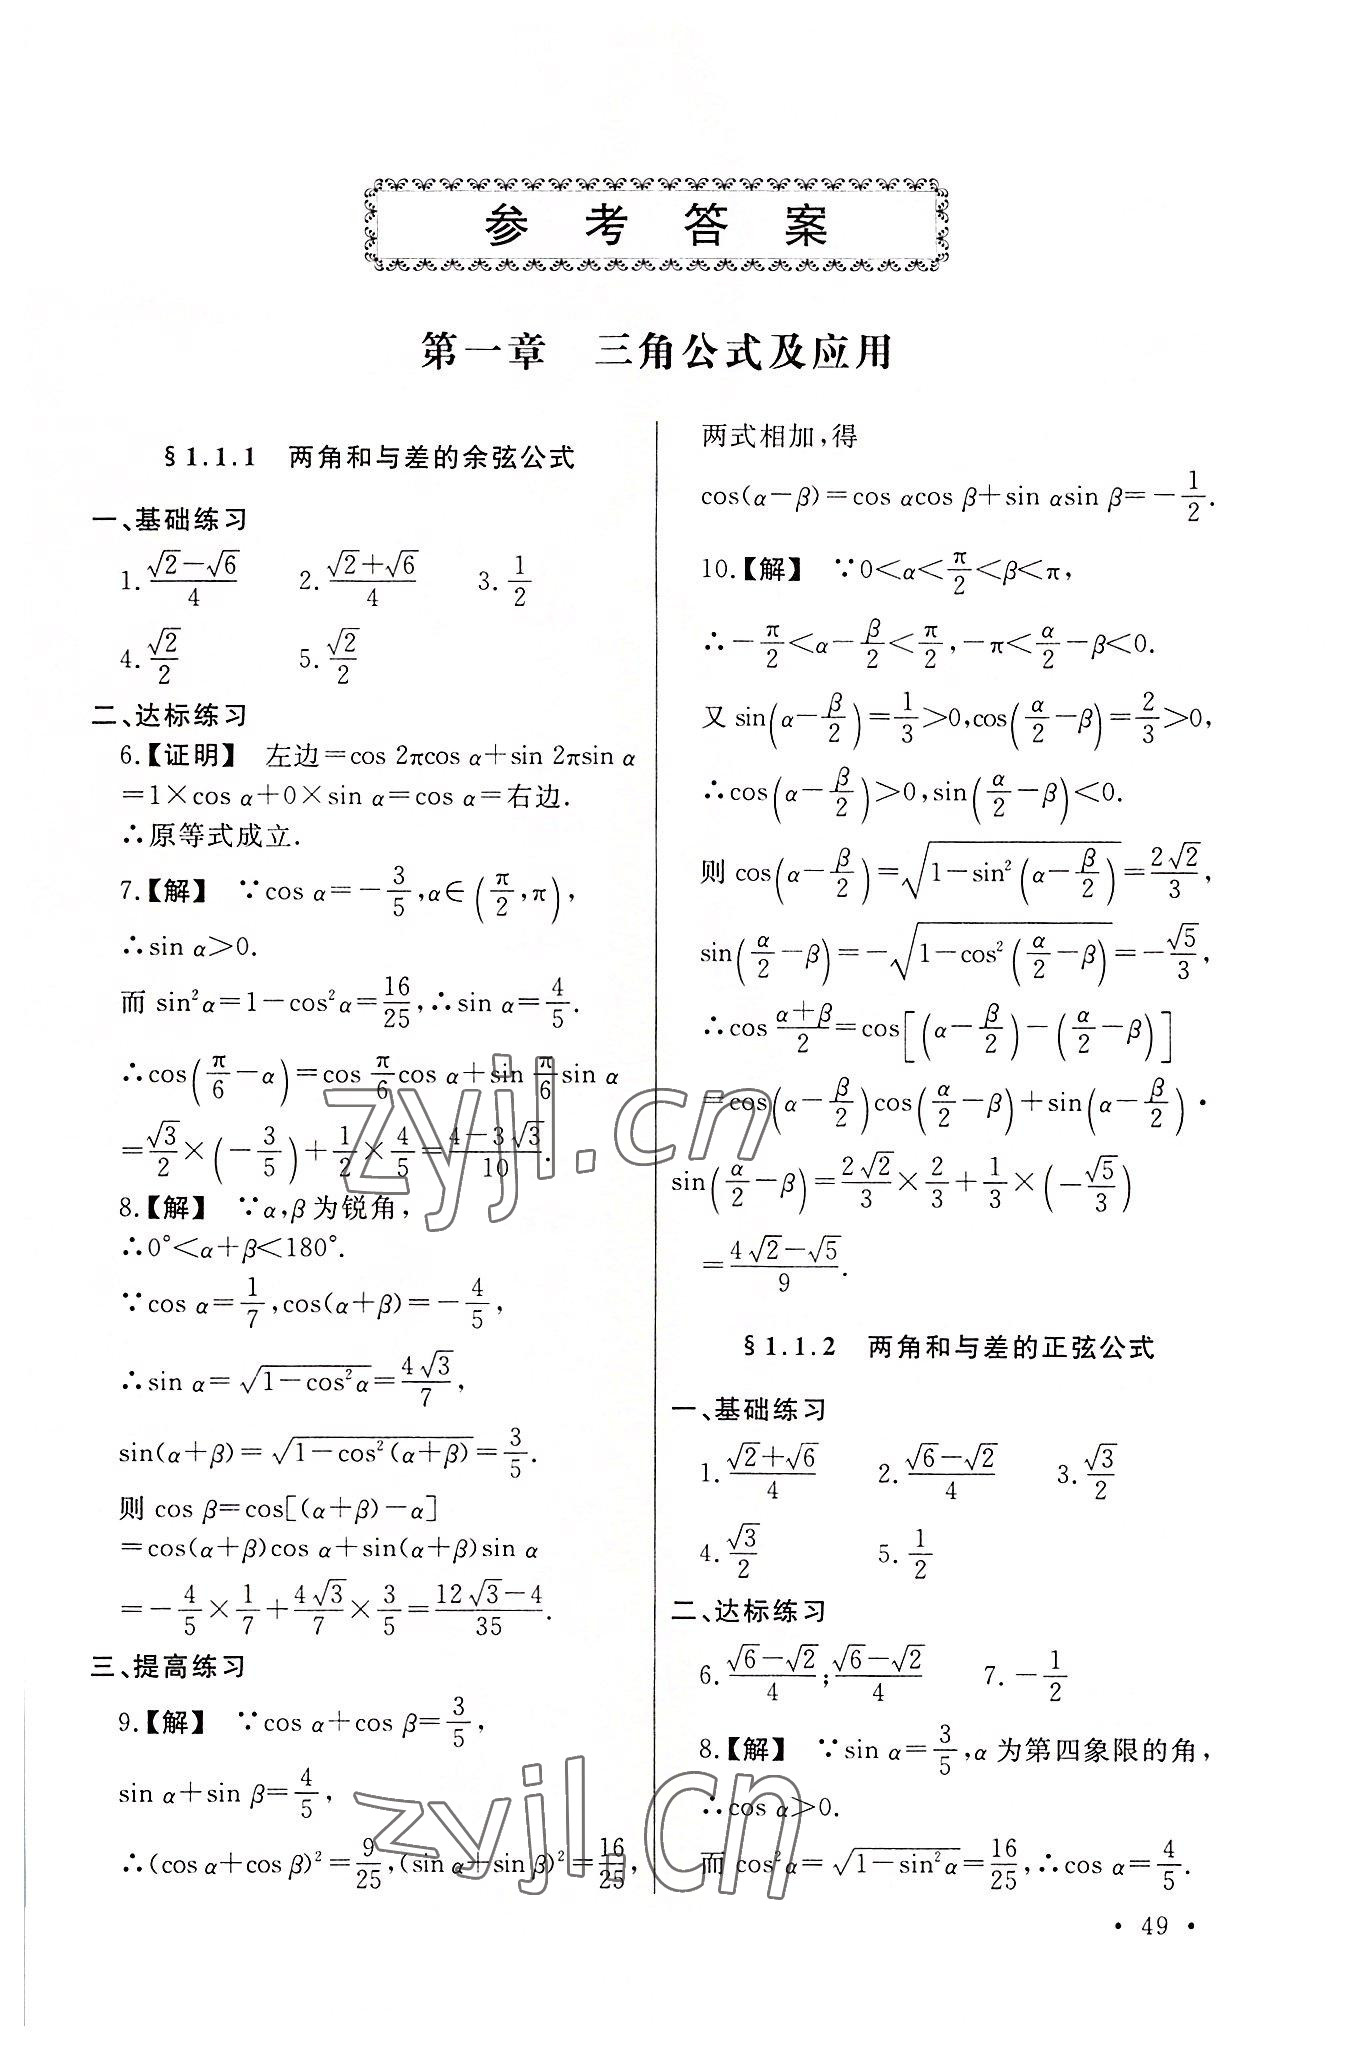 参考答案
第一章　三角公式及应用
§1.1.1　两角和与差的余弦公式
一、基础练习
1.$\frac{\sqrt{2}-\sqrt{6}}{4}$　2.$\frac{\sqrt{2}+\sqrt{6}}{4}$　3.$\frac{1}{2}$
4.$\frac{\sqrt{2}}{2}$　5.$\frac{\sqrt{2}}{2}$
二、达标练习
6.【证明】　左边=cos 2πcos α+sin 2πsin α
=1×cos α+0×sin α=cos α=右边.
∴原等式成立.
7.【解】　∵cos α=$-\frac{3}{5}$,α∈$\left(\frac{π}{2},π\right)$,
∴sin α>0.
而 sin²α=1-cos²α=$\frac{16}{25}$,∴sin α=$\frac{4}{5}$.
∴cos$\left(\frac{π}{6}-α\right)$=cos $\frac{π}{6}$cos α+sin $\frac{π}{6}$sin α
=$\frac{\sqrt{3}}{2}×\left(-\frac{3}{5}\right)+\frac{1}{2}×\frac{4}{5}=\frac{4-3\sqrt{3}}{10}$.
8.【解】　∵α,β为锐角,
∴0°<α+β<180°.
∵cos α=$\frac{1}{7}$,cos(α+β)=$-\frac{4}{5}$,
∴sin α=$\sqrt{1-cos^2α}=\frac{4\sqrt{3}}{7}$,
sin(α+β)=$\sqrt{1-cos^2(α+β)}=\frac{3}{5}$.
则 cos β=cos[(α+β)-α]
=cos(α+β)cos α+sin(α+β)sin α
=$-\frac{4}{5}×\frac{1}{7}+\frac{4\sqrt{3}}{7}×\frac{3}{5}=\frac{12\sqrt{3}-4}{35}$.
三、提高练习
9.【解】　∵cos α+cos β=$\frac{3}{5}$,
sin α+sin β=$\frac{4}{5}$,
∴(cos α+cos β)²=$\frac{9}{25}$,(sin α+sin β)²=$\frac{16}{25}$,
两式相加,得
cos(α-β)=cos αcos β+sin αsin β=$-\frac{1}{2}$.
10.【解】　∵0<α<$\frac{π}{2}$<β<π,
∴$-\frac{π}{2}<α-\frac{β}{2}<\frac{π}{2}$,$-π<\frac{α}{2}-β<0$.
又 sin$\left(α-\frac{β}{2}\right)=\frac{1}{3}>0$,cos$\left(\frac{α}{2}-β\right)=\frac{2}{3}>0$,
∴cos$\left(α-\frac{β}{2}\right)>0$,sin$\left(\frac{α}{2}-β\right)<0$.
则 cos$\left(α-\frac{β}{2}\right)=\sqrt{1-sin^2\left(α-\frac{β}{2}\right)}=\frac{2\sqrt{2}}{3}$,
sin$\left(\frac{α}{2}-β\right)=-\sqrt{1-cos^2\left(\frac{α}{2}-β\right)}=-\frac{\sqrt{5}}{3}$,
∴cos $\frac{α+β}{2}$=cos$\left[\left(α-\frac{β}{2}\right)-\left(\frac{α}{2}-β\right)\right]$
=cos$\left(α-\frac{β}{2}\right)$cos$\left(\frac{α}{2}-β\right)$+sin$\left(α-\frac{β}{2}\right)$·
sin$\left(\frac{α}{2}-β\right)=\frac{2\sqrt{2}}{3}×\frac{2}{3}+\frac{1}{3}×\left(-\frac{\sqrt{5}}{3}\right)$
=$\frac{4\sqrt{2}-\sqrt{5}}{9}$.
§1.1.2　两角和与差的正弦公式
一、基础练习
1.$\frac{\sqrt{2}+\sqrt{6}}{4}$　2.$\frac{\sqrt{6}-\sqrt{2}}{4}$　3.$\frac{\sqrt{3}}{2}$
4.$\frac{\sqrt{3}}{2}$　5.$\frac{1}{2}$
二、达标练习
6.$\frac{\sqrt{6}-\sqrt{2}}{4}$;$\frac{\sqrt{6}-\sqrt{2}}{4}$　7.$-\frac{1}{2}$
8.【解】　∵sin α=$\frac{3}{5}$,α为第四象限的角,
∴cos α>0.
而 cos²α=$\sqrt{1-sin^2α}=\frac{16}{25}$,∴cos α=$\frac{4}{5}$.
·49·
zyjl.cn
zyjl.cn